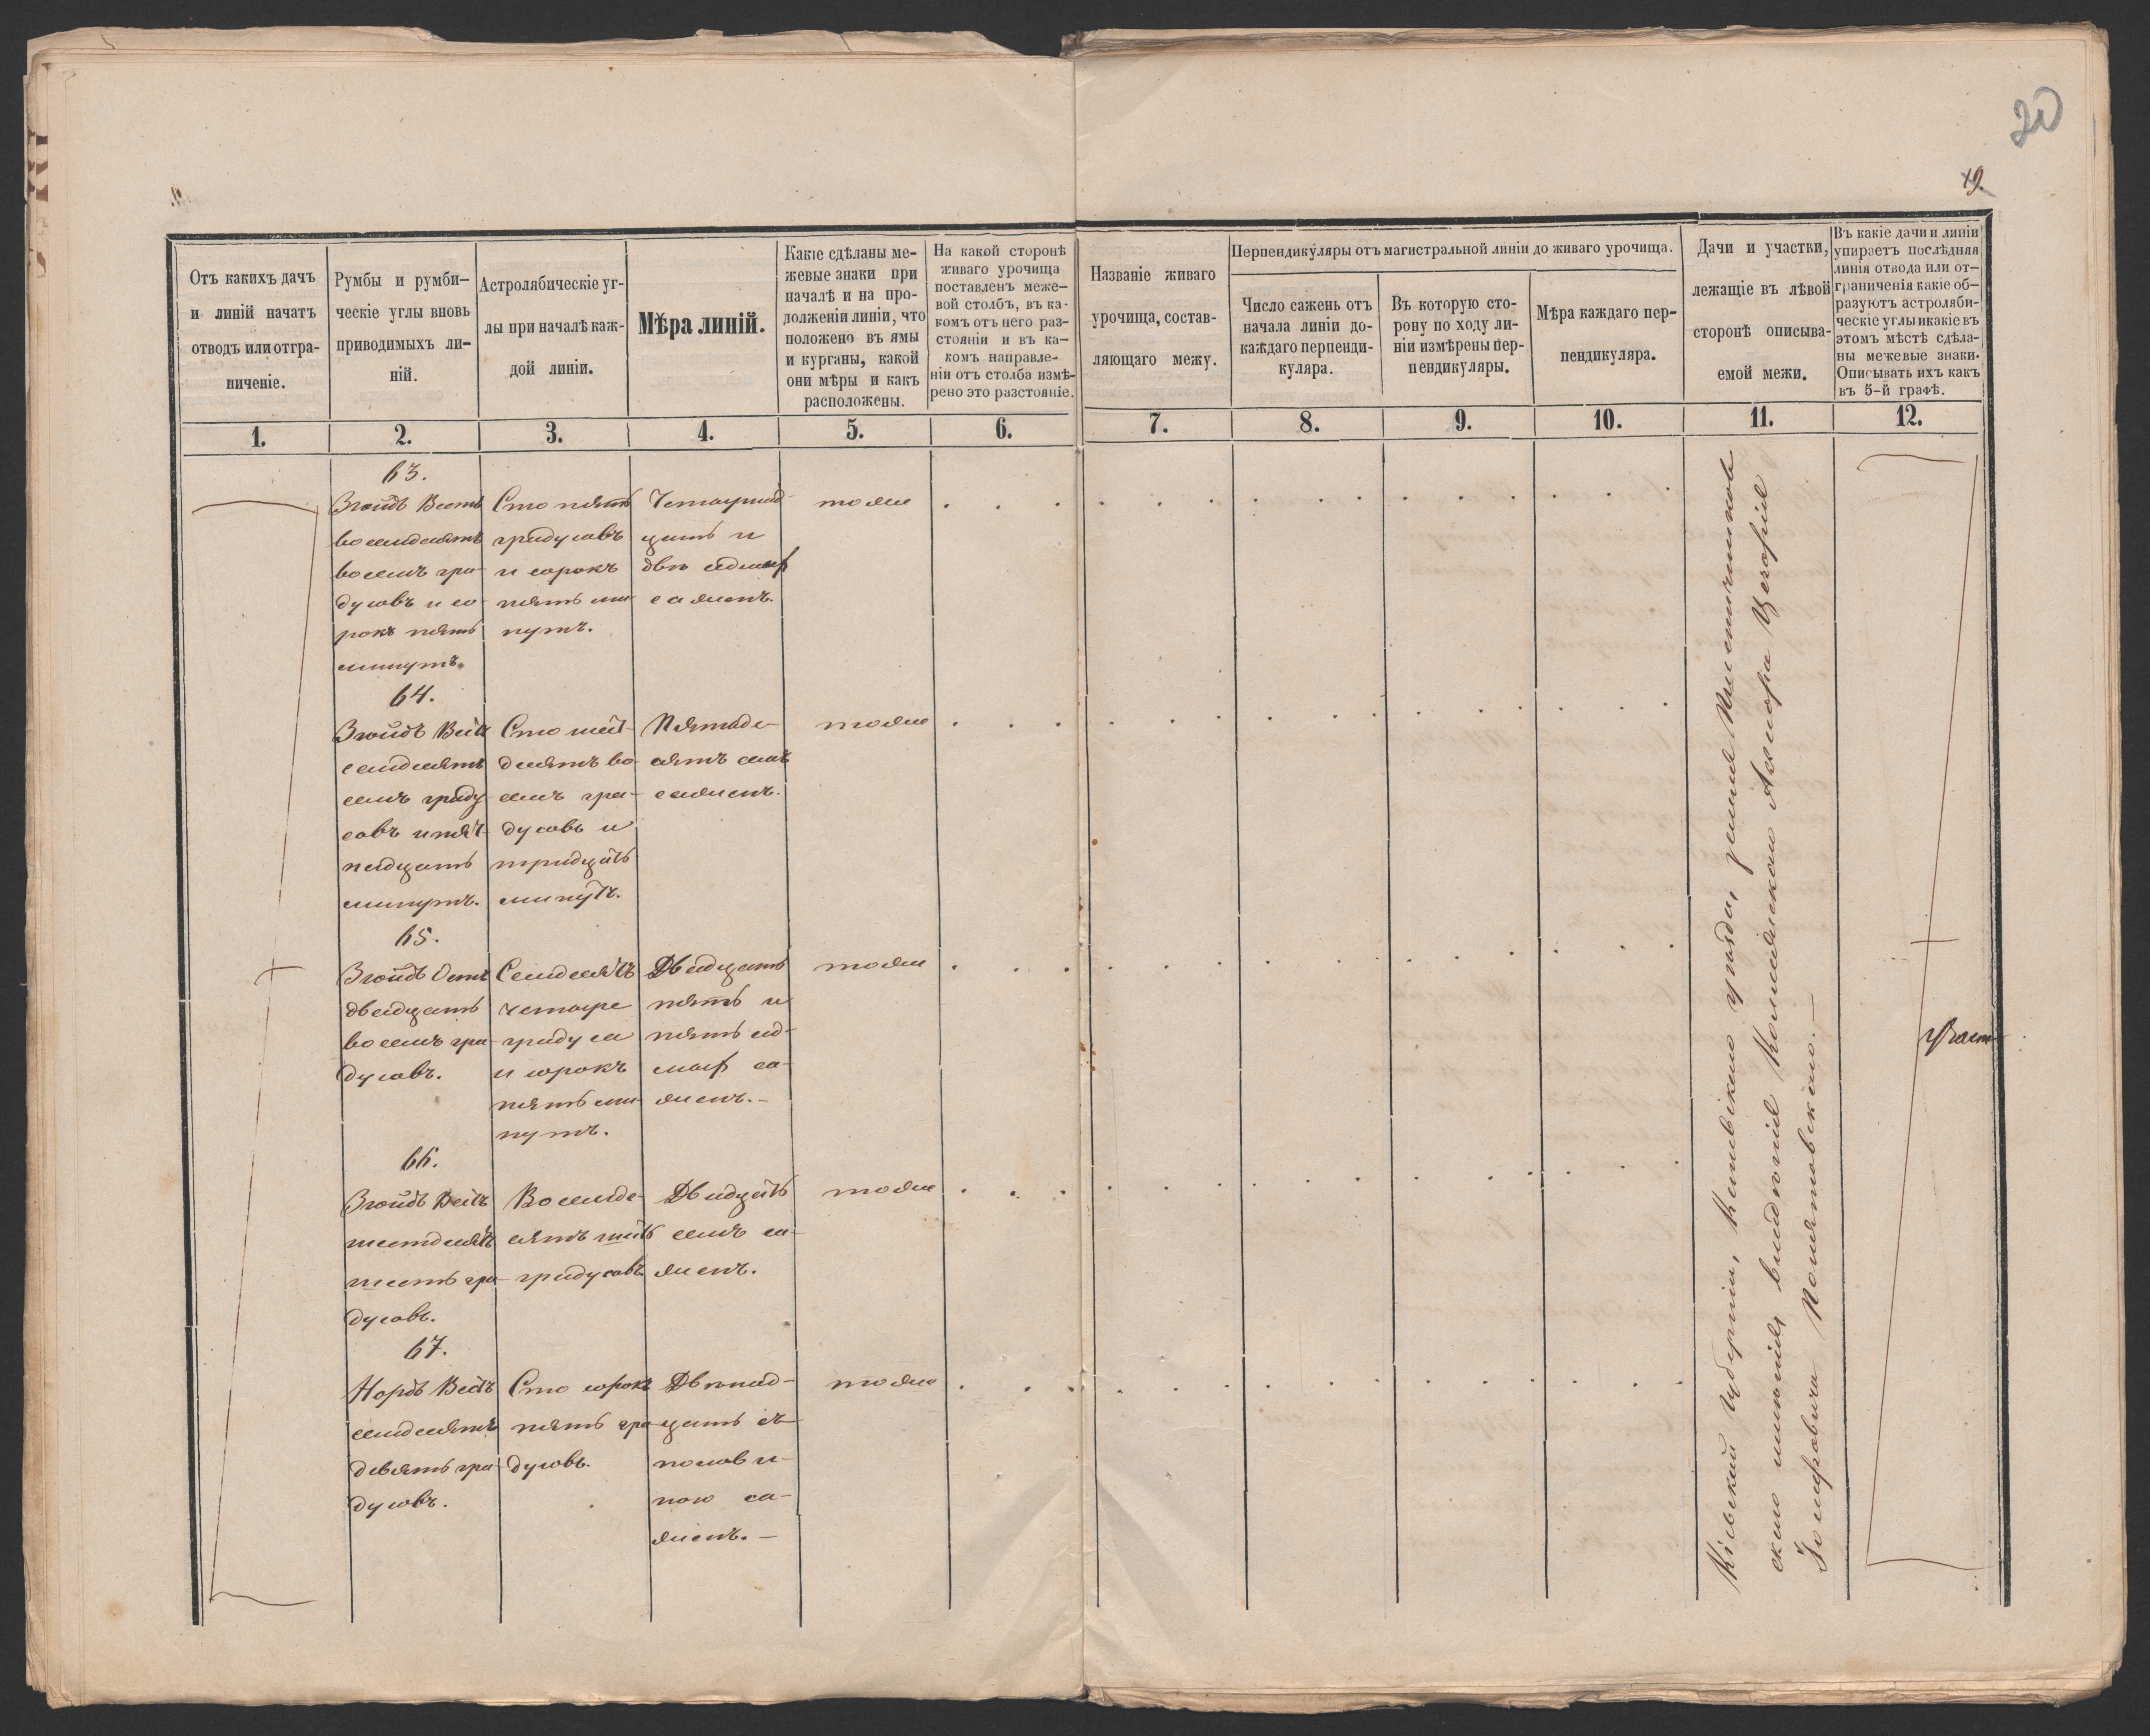 20
19.
Отъ какихъ дачъ
и линій начатъ
отводъ или отгра-
ниченіе.
Румбы и румби-
ческіе углы вновь
приводимыхъ ли-
ній.
Астролябическіе уг-
лы при началѣ каж-
дой линіи.
Мѣра линій.
Какіе сдѣланы ме-
жевые знаки при
началѣ и на про-
долженіи линіи, что
положено въ ямы
и курганы, какой
они мѣры и какъ
расположены.
На какой сторонѣ
живаго урочища
поставленъ меже-
вой столбъ, въ ка-
комъ отъ него раз-
стояніи и въ ка-
комъ направле-
ніи отъ столба измѣ-
рено это разстояніе.
Названіе живаго
урочища, состав-
ляющаго межу.
Перпендикуляры отъ магистральной линіи до живаго урочища.
Число сажень отъ
начала линіи до-
каждаго перпенди-
куляра.
Въ которую сто-
рону по ходу ли-
ніи измѣрены пер-
пендикуляры.
Мѣра каждаго пер-
пендикуляра.
Дачи и участки,
лежащіе въ лѣвой
сторонѣ описыва-
емой межи.
Въ какіе дачи и линіи
упираетъ послѣдняя
линія отвода или от-
граниченія какіе об-
разуютъ астроляби-
ческіе углы и какіе въ
этомъ мѣстѣ сдѣла-
ны межевые знаки.
Описывать ихъ какъ
въ 5-й графѣ.
1. 2. 3. 4. 5. 6. 7. 8. 9. 10. 11. 12.
63.
Зюйдъ Вестъ
восемдесятъ
восемъ гра-
дусовъ и со-
рокъ пять
минутъ.
Сто пять
градусовъ
и сорокъ
пять ми-
нутъ.
Четырнад-
цать и
двѣ седмыхъ
сажень.
тоже
64.
Зюйдъ Вестъ
семдесятъ
семъ граду
совъ и пят-
надцать
минутъ.
Сто шест-
десятъ во-
семъ гра-
дусовъ и
тридцать
минутъ.
Пятьде-
сятъ семь
сажень.
тоже
65.
Зюйдъ Остъ
двадцать
восемъ гра-
дусовъ.
Семдесятъ
четыре
градуса
и сорокъ
пять ми-
нутъ.
Двадцать
пять и
пять сед-
мыхъ са-
жень.-
тоже
66.
Зюйдъ Вестъ
шестдесятъ
шесть гра-
дусовъ.
Восемде-
сятъ шесть
градусовъ.
Двадцать
семь са-
жень.
тоже
67.
Нордъ Вестъ
семдесятъ
девять гра-
дусовъ.
Сто сорокъ
пять гра-
дусовъ.
Двѣнад-
цать съ
полови-
ною са-
жень.-
тоже
Кіевской губерніи, Каневскаго уѣзда, земля
скаго имѣнія, владѣнія
Понятовскаго.-
Участ-